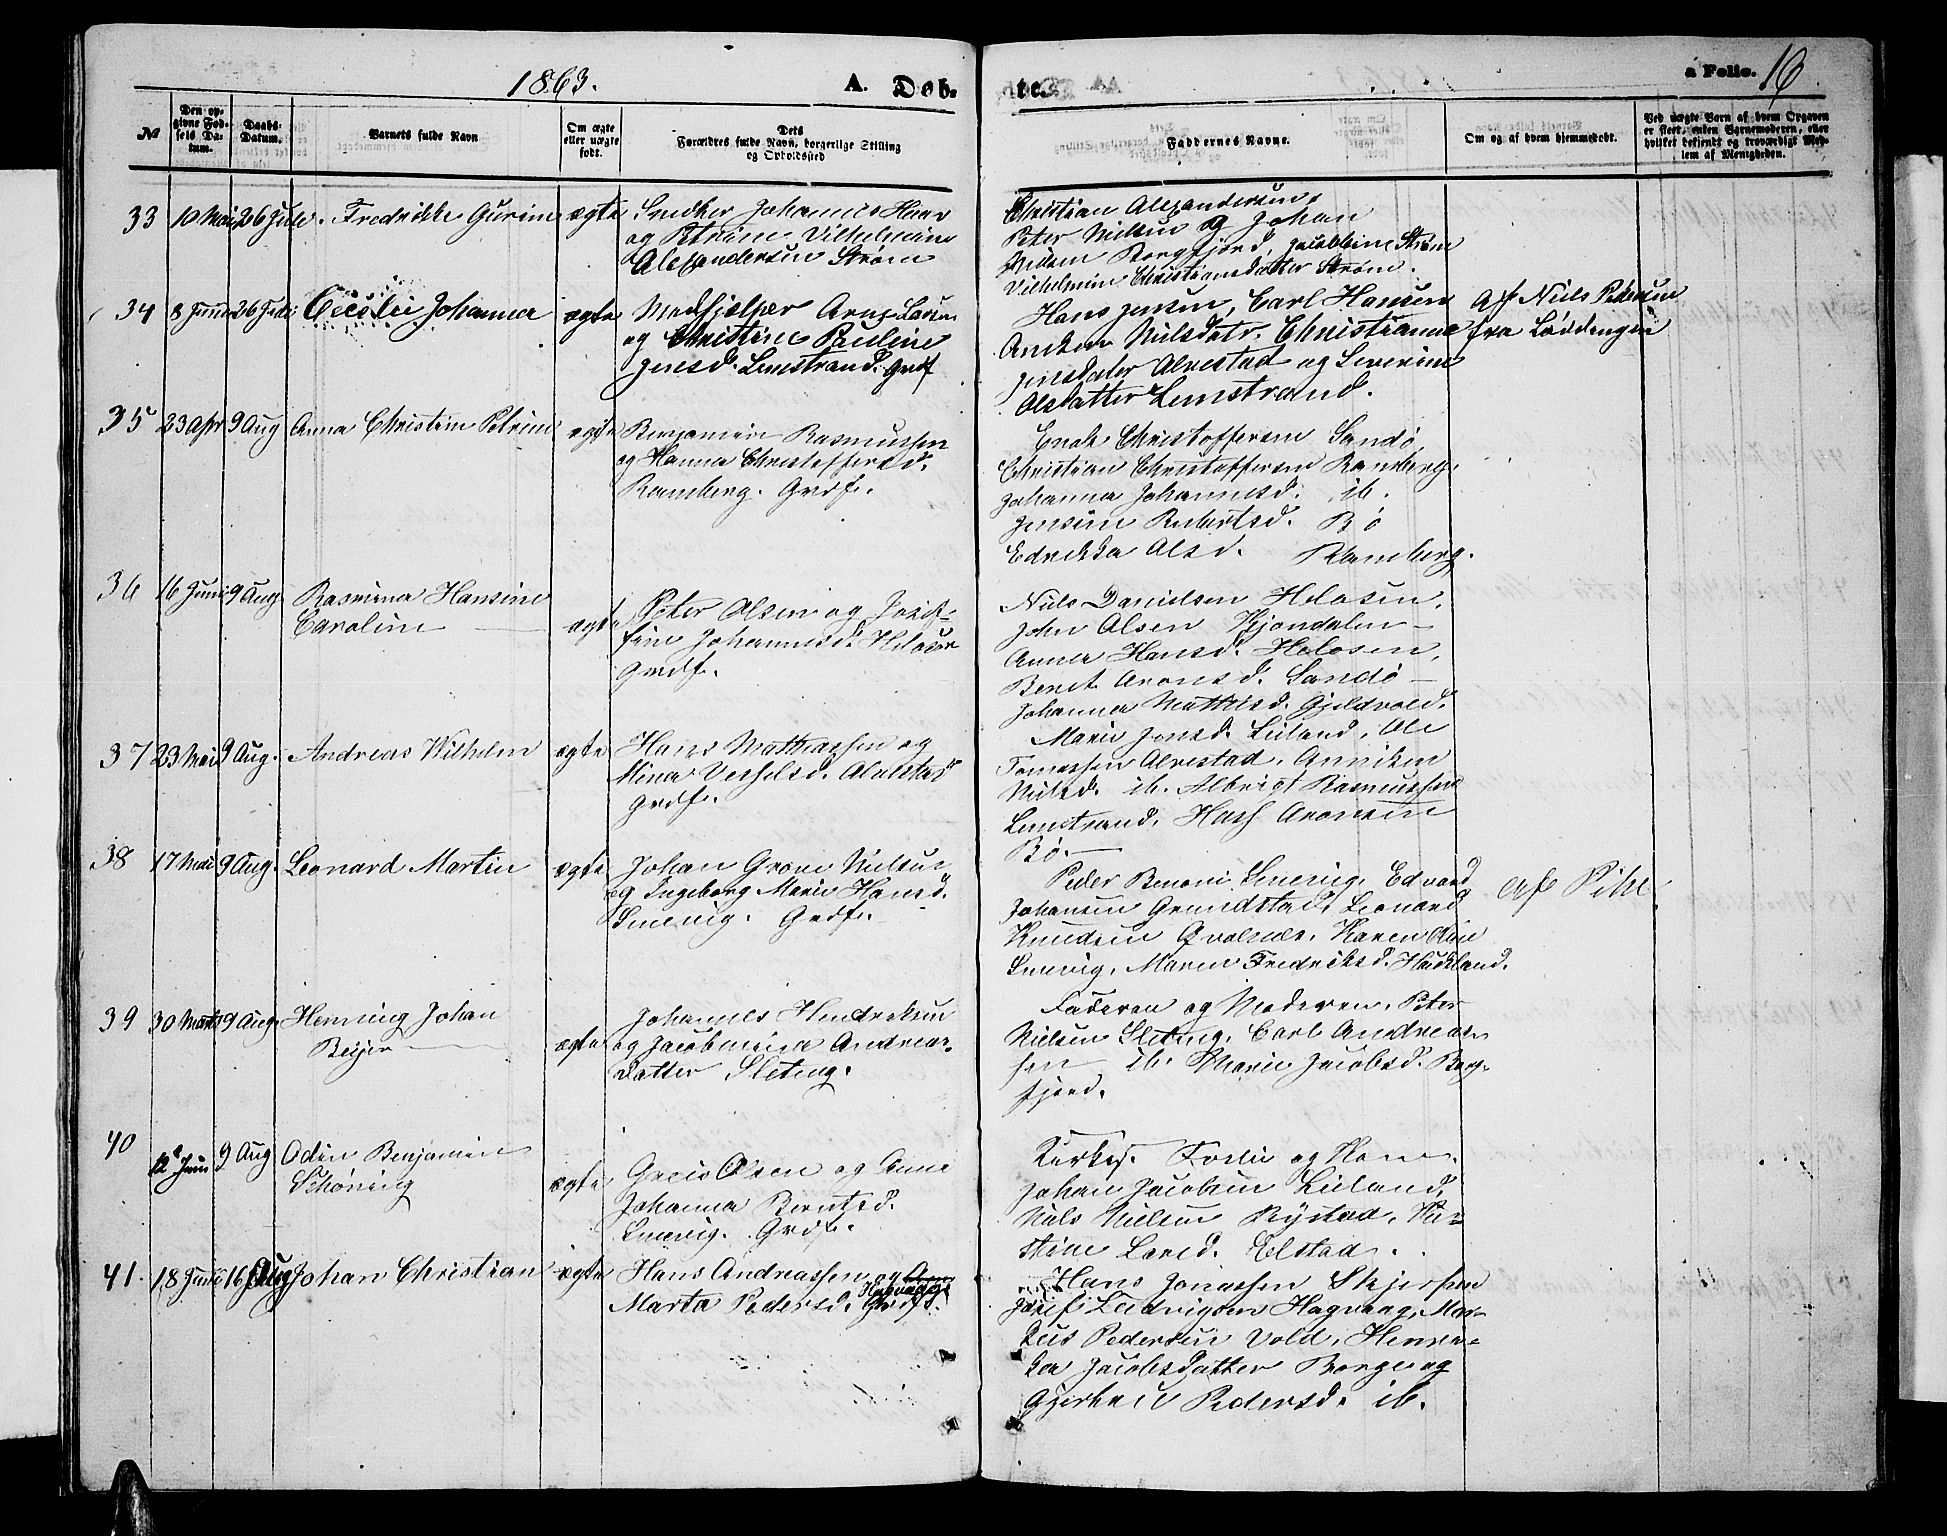 1863.
A. Døb-
te.
a Folio. 16
№
Den op-
givne Fød-
sels Da-
tum.
Daabs-
Datum.
Barnets fulde Navn
Om ægte
eller uægte
født.
Dets
Forældres fulde Navn, borgerlige Stilling
og Opholdssted
Faddernes Navne.
Om og af hvem hjemmedøbt.
Ved uægte Barn af hvem Opgaven
er skeet, enten Barnemoderen, eller
hvilket bekjendt og troværdigt Med-
lem af Menigheden.
33 10 Mai 26 Juli. Fredrikke Gurine ægte Snedker Johannes Haar
og Petrine Vilhelmine
Alexandersen Strøm
Christian Alexandersen,
Peter Nielsen og Johan
Nilsen Borgfjord, Jacobbine Strøm
Vilhelmine Christiansdatter Strøm.
34 8 Juni 26 Juli Cecilie Johanna ægte Medhjelper Arnt Larsen
og Christine Pauline
Jensd. Lenestrand. Grdf
Hans Jensen, Carl Hansen
Aniken Nilsdatr. Christianna
Jensdater Alvestad og Severine
Olsdatter Lenstrand.
Af Niels Pedersen
fra Løddengen
35 23 Apr 9 Aug Anna Christine Petrine ægte Benjamin Rasmussen
og Hanna Christoffersd.
Ramberg. Grdf.
Enok Christoffersen Sandø,
Christian Christoffersen Ramberg.
Johanna Johannesd. ib.
Jensine Robertsd. Bø
Edrikka Olsd. Ramberg.
36 16 Juni 9 Aug. Rasmina Hansine
Caroline
ægte Peter Olsen og Josef-
fine Johannesd. Helosen
Grdf.
Niels Danielsen Helosen,
John Olsen Kjondalen
Anna Hansd. Helosen,
Beret Aronsd. Sandø
Johanna Mathisd. Gjeldvold.
37 23 Mai 9 Aug. Andreas Wilhelm ægte Hans Mathiassen og
Mina Vesselsd. Alvestad
Grdf.
Marie Jensd. Leiland, Ole
Tomassen Alvestad, Anniken
Nilsd. ib. Albrigt Rasmussen
Lenstrand, Hans Aronsen
Bø.
38 17 Mai 9 Aug. Leonard Martin ægte Johan Grove Nielsen
og Ingeborg Marie Hansd.
Snevig. Grdf.
Peder Benoni Snevig, Edvard
Johansen Grundstad, Leonard
Knudsen Qvalnæs, Karen
Snevig, Maren Fredriksd. Haukland.
af Pihl
39 30 Marts 9 Aug. Henning Johan
Beijer
ægte Johannes Hendriksen
og Jacobmina Andreas-
datter Sleteng.
Faderen og Moderen, Peter
Nielsen Sleteng, Carl Andreas-
sen ib. Marie Jacobsd. Borg-
fjord.
40 12 Juni 9 Aug Odin Benjamin
Schøning
ægte Greis Olsen og Anne
Johanna Berntsd.
Snevig. Grdf.
Kirkes. Foslie og Kone.
Johan Jacobsen Leiland,
Nils Nielsen Rystad,
stine Larsd. Eltstad.
41. 18 Juni 16 Aug Johan Christian ægte Hans Andreassen og
Marta Pedersd. Hagvaag.
Grdf.
Hans Jonassen Skjerpen
Josef Ludvigsen Hagvaag, Mar-
kus Pedersen Vold, Henri-
ka Jacobsdatter Borge og
Pedersd. ib.